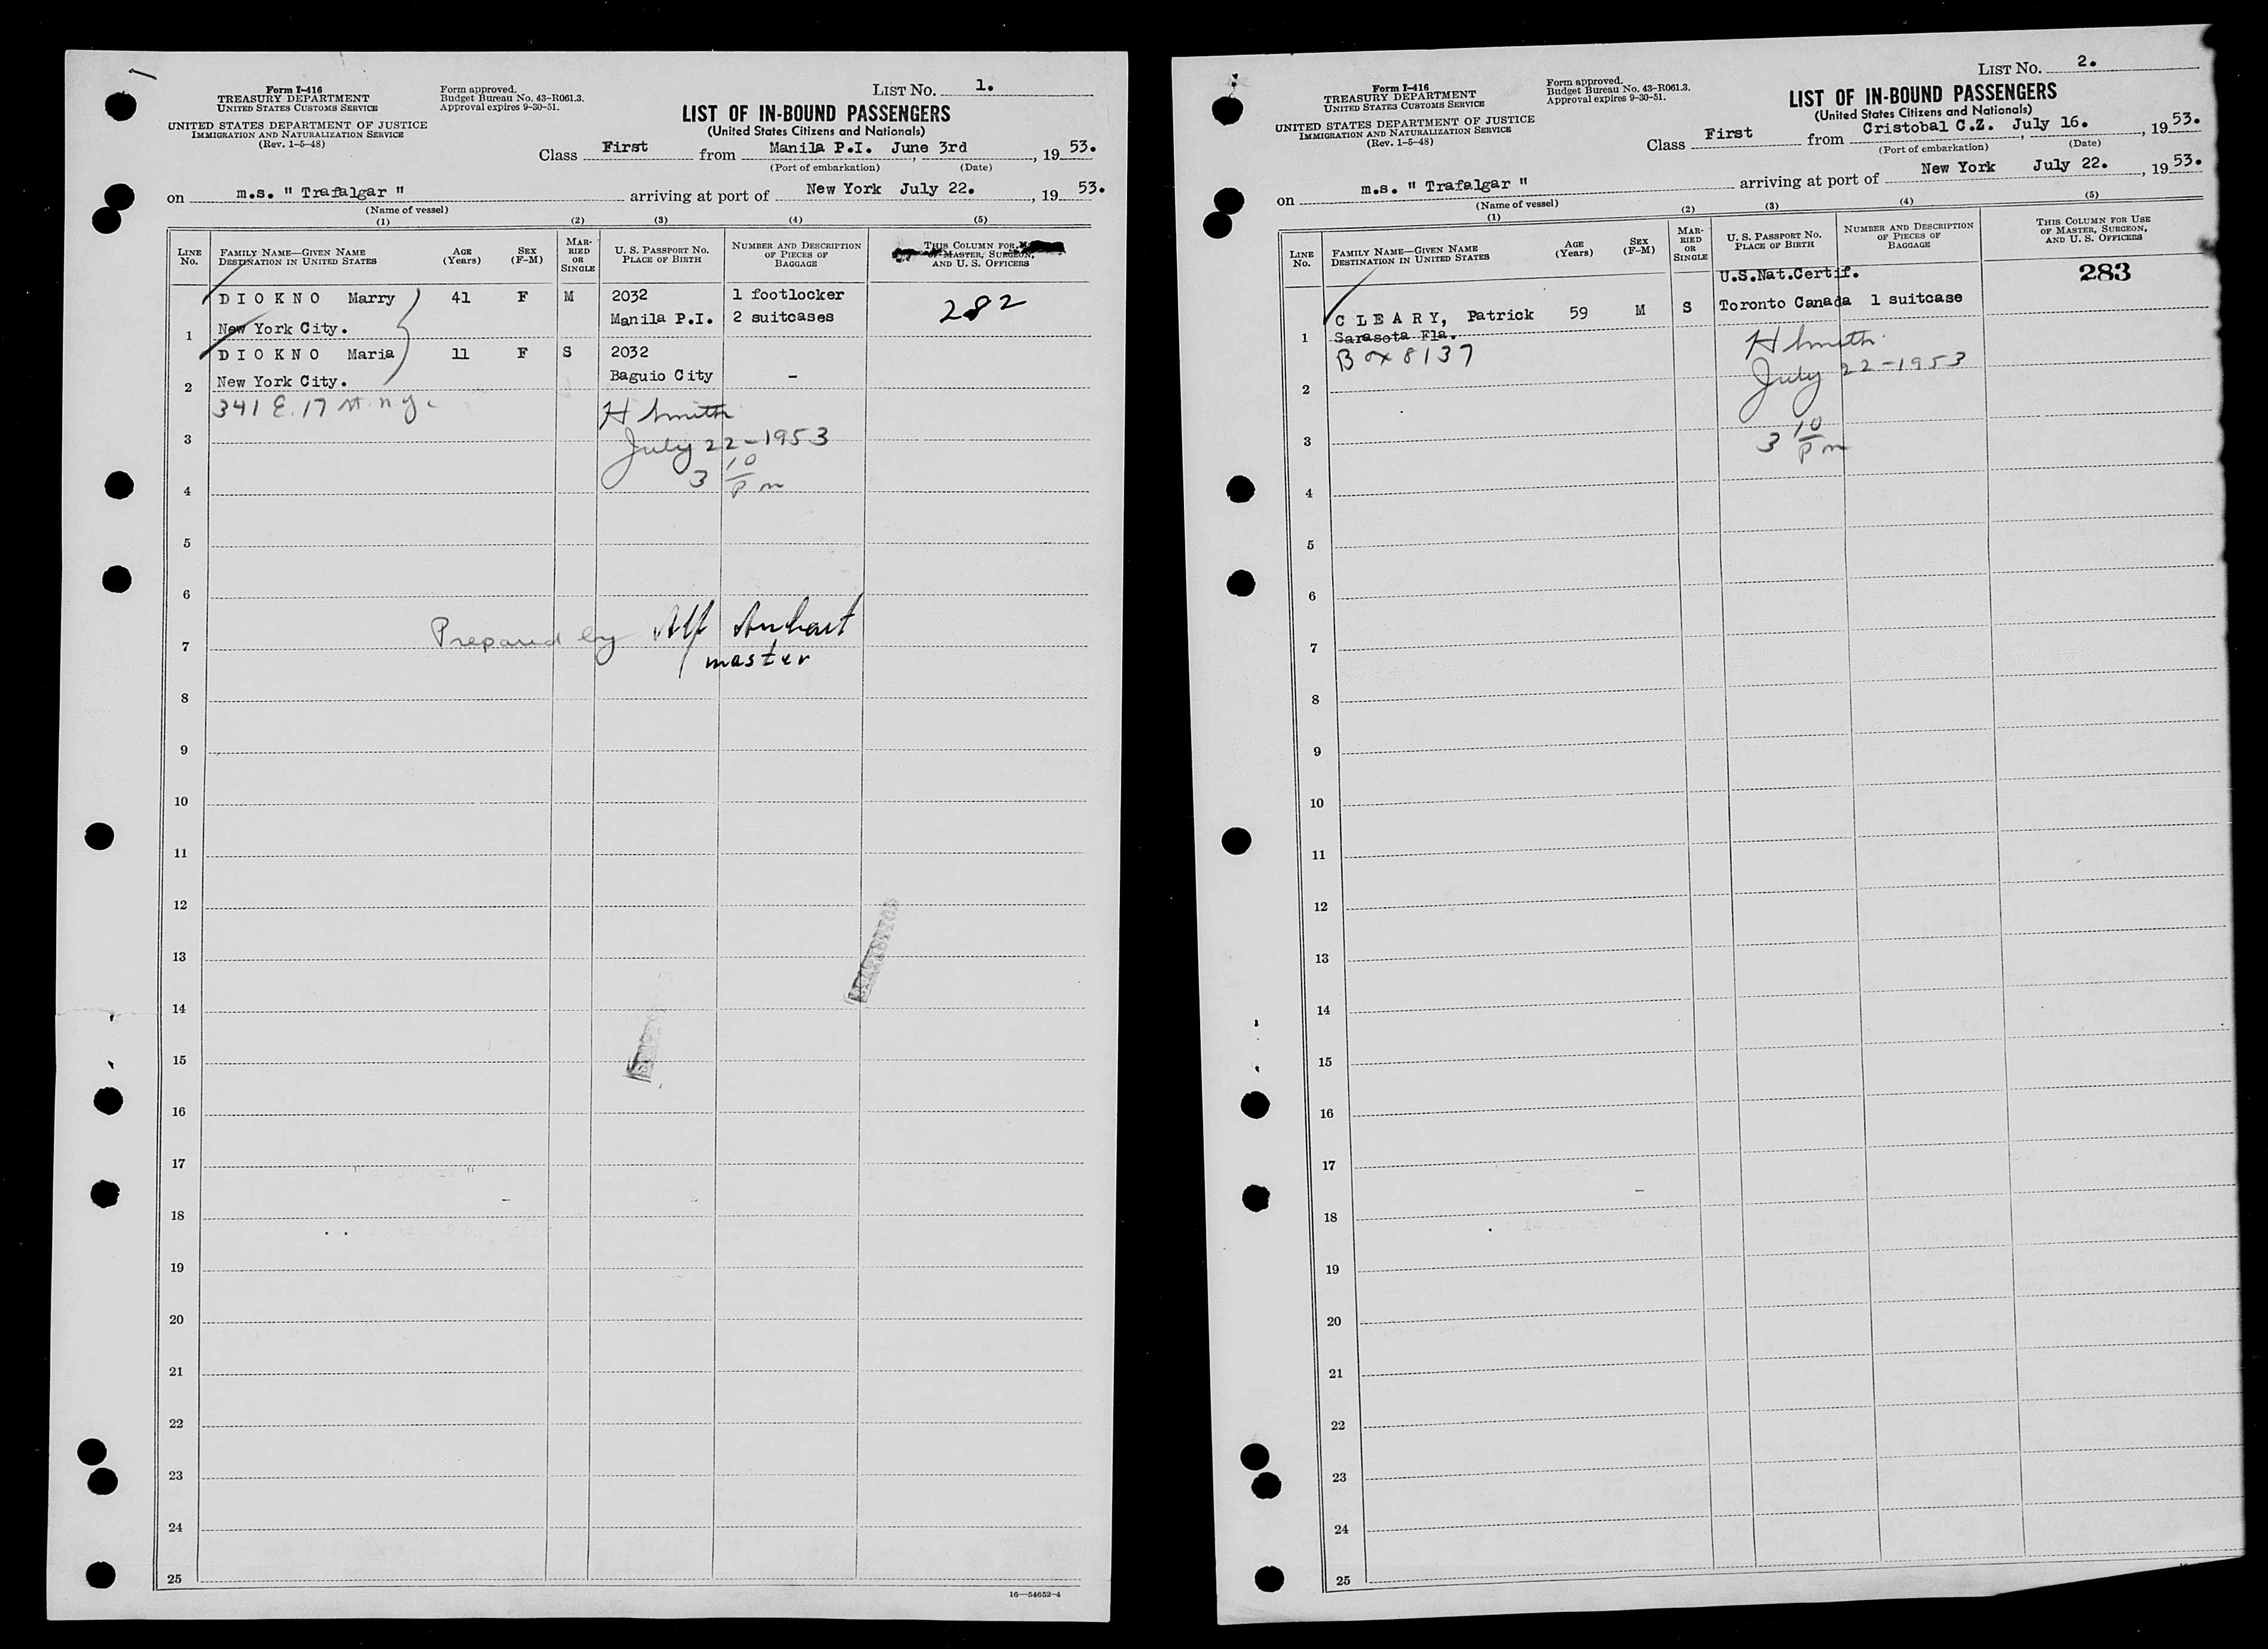 Form I-416
TREASURY DEPARTMENT
UNITED STATES CUSTOMS SERVICE
UNITED STATES DEPARTMENT OF JUSTICE
IMMIGRATION AND NATURALIZATION SERVICE
(Rev. 1-5-48)
Form approved.
Budget Bureau No. 43-R061.3.
Approval expires 9-30-51.
LIST NO. 1.
LIST OF IN-BOUND PASSENGERS
(United States Citizens and Nationals)
Class First from Manila P.I. June 3rd, 19 53.
(Port of embarkation) (Date)
on m.s. " Trafalgar " arriving at port of New York July 22., 19 53.
(Name of vessel)
(1) (2) (3) (4) (5)
LINE NO. FAMILY NAME—GIVEN NAME DESTINATION IN UNITED STATES AGE (Years) SEX (F-M) MARRIED OR SINGLE U. S. PASSPORT NO. PLACE OF BIRTH NUMBER AND DESCRIPTION OF PIECES OF BAGGAGE THIS COLUMN FOR OF MASTER, SURGEON, AND U. S. OFFICERS
DIOKNO Marry 41 F M 2032 1 footlocker 282
1 New York City. Manila P.I. 2 suitcases
DIOKNO Maria 11 F S 2032
2 New York City. Baguio City -
341 E. 17 st. n y.
H Smith
3 July 22-1953
4 3 10/Pm
5
6
Prepared by Alf
7 master
8
9
10
11
12
13
14
15
16
17
18
19
20
21
22
23
24
25
16—54652-4
Form I-416
TREASURY DEPARTMENT
UNITED STATES CUSTOMS SERVICE
UNITED STATES DEPARTMENT OF JUSTICE
IMMIGRATION AND NATURALIZATION SERVICE
(Rev. 1-5-48)
Form approved.
Budget Bureau No. 43-R061.3.
Approval expires 9-30-51.
LIST NO. 2.
LIST OF IN-BOUND PASSENGERS
(United States Citizens and Nationals)
Class First from Cristobal C.Z. July 16., 19 53.
(Port of embarkation) (Date)
on m.s. " Trafalgar " arriving at port of New York July 22., 19 53.
(Name of vessel)
(1) (2) (3) (4) (5)
LINE NO. FAMILY NAME—GIVEN NAME DESTINATION IN UNITED STATES AGE (Years) SEX (F-M) MARRIED OR SINGLE U. S. PASSPORT NO. PLACE OF BIRTH NUMBER AND DESCRIPTION OF PIECES OF BAGGAGE THIS COLUMN FOR USE OF MASTER, SURGEON, AND U. S. OFFICERS
U.S.Nat.Certif. 283
CLEARY, Patrick 59 M S Toronto Canada 1 suitcase
1 Sarasota Fla.
Box 8137 H Smith
2 July 22-1953
3 3 10/Pm
4
5
6
7
8
9
10
11
12
13
14
15
16
17
18
19
20
21
22
23
24
25